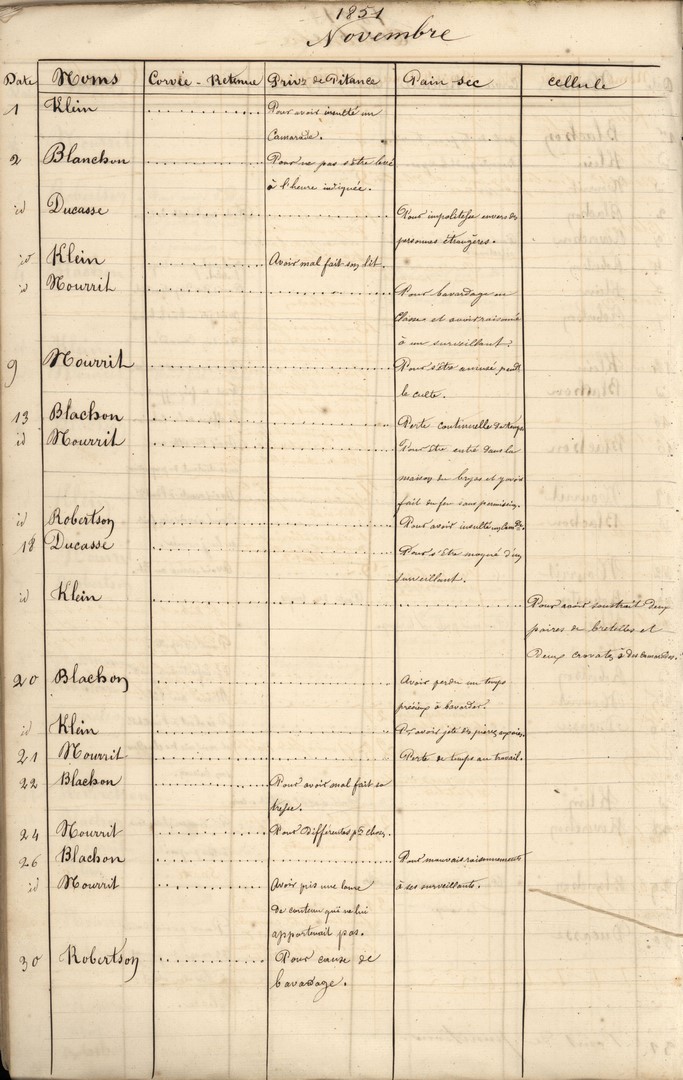 1851
Novembre
Date Noms Corvée - Retenue Privn de Pitance Pain-sec cellule
1 Klein Pour avoir insulté un
Camarade.
2 Blanchon Pour ne pas s'être levé
à l'heure indiquée.
id Ducasse Pour impolitesse envers des
personnes étrangères.
id Klein Avoir mal fait son lit.
id Nourrit Pour bavardage en
Classe et avoir raisonné
à un surveillant.
9 Nourrit Pour s'être amusé pendt
le culte.
13 Blachon Perte continuelle de temps
id Nourrit Pour être entré dans la
maison du et y avoir
fait du feu sans permission.
id Robertson Pour avoir insulté un Camde.
18 Ducasse Pour s'être moqué d'un
surveillant.
id Klein Pour avoir soustrait deux
paires de bretelles et
Deux cravates à des camarades.
20 Blachon Avoir perdu un temps
précieux à bavarder.
id Klein Pr avoir jeté des pierres
21 Nourrit Perte de temps au travail.
22 Blachon Pour avoir mal fait sa
tresse.
24 Nourrit Pour Différentes pts choses.
26 Blachon Pour mauvais raisonnements
à ses surveillants.
id Nourrit Avoir pris une lame
de couteau qui ne lui
appartenait pas.
30 Robertson Pour cause de
bavadage.